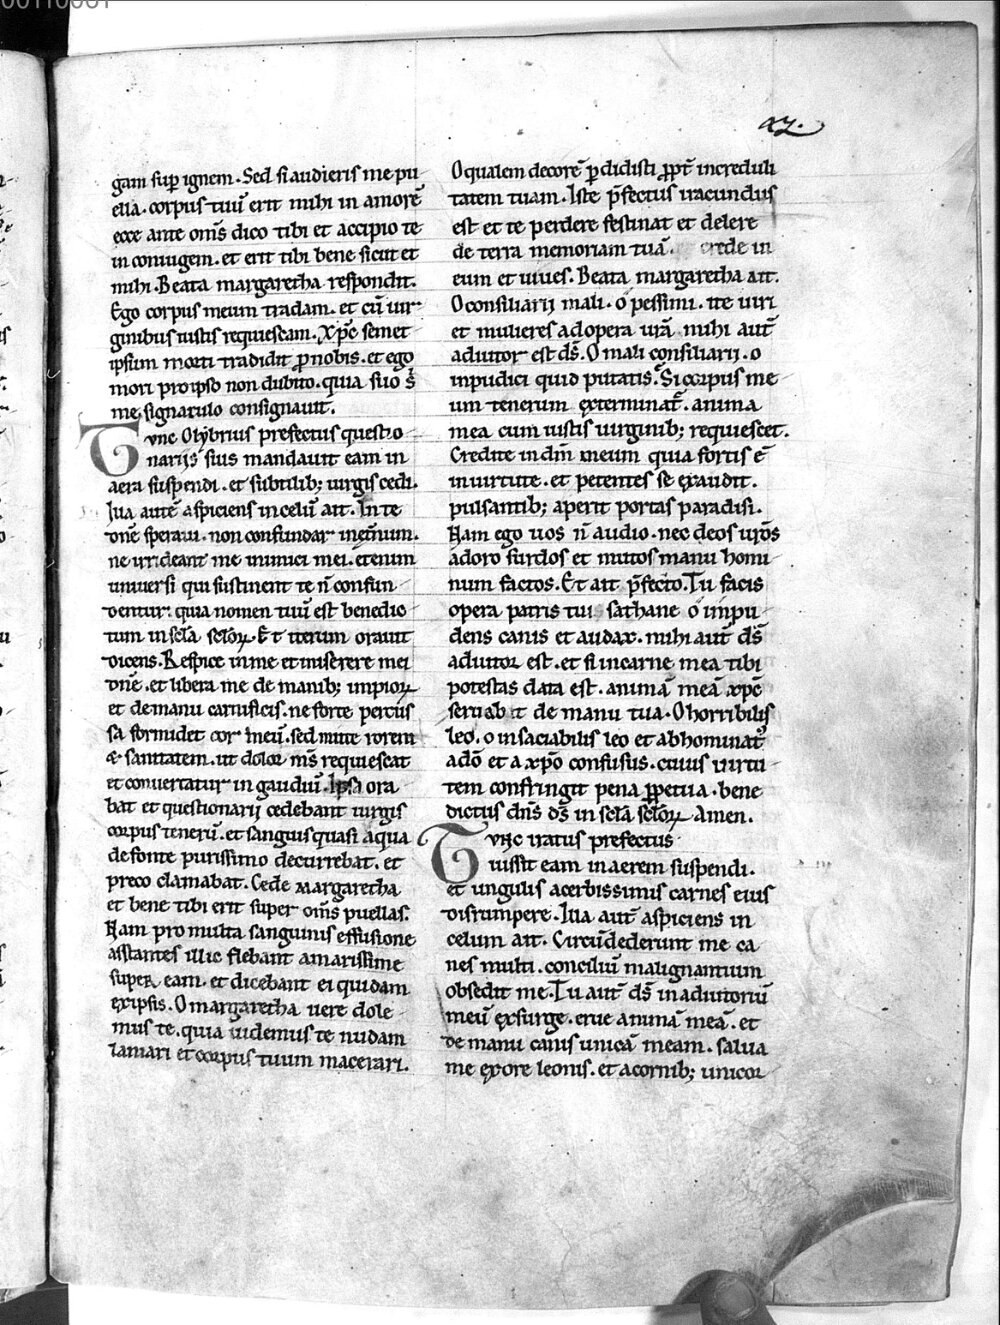 gam sup ignem. Sed si audieris me pu
ella. corpus tuū erit mihi in amorē
ecce ante om̄s dico tibi et accipio te
in coniugem. et erit tibi bene sicut et
mihi. Beata margaretha respondit.
Ego corpus meum tradam. et cū uir
ginibus iustis requiescam. Xp̄c semet
ipsum morti tradidit ꝓ nobis. et ego
mori pro ipso non dubito. quia suo
me signaculo consignauit.
Tunc Olybrius prefectus questio
nariis suis mandauit eam in
aera suspendi. et subtilib; uirgis cedi.
Illa autē aspiciens in celū ait. In te
dn̄e speraui. non confundar in et̄num.
ne irrideant me inimici mei. etenim
uniuersi qui sustinent te n̄ confun
dentur. quia nomen tuū est benedic
tum in scl̄a scl̄oꝝ. Et iterum orauit
dicens. Respice in me et miserere mei
dn̄e. et libera me de manib; impioꝝ
et de manu carnificis. ne forte percus
sa formidet cor meū. sed mitte rorem
& sanitatem. ut dolor m̄s requiescat
et conuertatur in gaudiū. Ipsa ora
bat et questionarii cedebant uirgis
corpus tenerū. et sanguis quasi aqua
de fonte purissimo decurrebat. et
preco clamabat. Cede margaretha
et bene tibi erit super om̄s puellas.
Nam pro multa sanguinis effusione
asstantes illic flebant amarissime
super eam. et dicebant ei quidam
ex ipsis. O margaretha uere dole
mus te. quia uidemus te nudam
laniari et corpus tuum macerari.
O qualem decorē ꝑdidisti ꝓpt̄ increduli
tatem tuam. Iste p̄fectus iracundus
est et te perdere festinat et delere
de terra memoriam tuā. crede in
eum et uiues. Beata margaretha ait.
O consiliarii mali. o pessimi. ite uiri
et mulieres ad opera ur̄a. mihi aut̄
adiutor est ds̄. O mali consiliarii. o
inpudici quid putatis. Si corpus me
um tenerum exterminat̄. anima
mea cum iustis uirginib; requiescet.
Credite in dm̄ meum quia fortis ē
in uirtute. et petentes se exaudit.
pulsantib; aperit portas paradisi.
Nam ego uos n̄ audio. nec deos ur̄os
adoro surdos et mutos manu homi
num factos. Et ait p̄fecto. Tu facis
opera patris tui sathane o impu
dens canis et audax. mihi aut̄ ds̄
adiutor est. et si in carne mea tibi
potestas data est. animā meā xp̄c
seruabit de manu tua. O horribilis
leo. o insaciabilis leo et abhominat᷒
a dō et a xp̄o confusus. cuius uirtu
tem confringit pena ꝑpetua. bene
dictus dn̄s ds̄ in scl̄a scl̄oꝝ. Amen.
Tunc iratus prefectus
iussit eam in aerem suspendi.
et ungulis acerbissimis carnes eius
disrumpere. Illa aut̄ aspiciens in
celum ait. Circūdederunt me ca
nes multi. conciliū malignantium
obsedit me. Tu aut̄ ds̄ in adiutoriū
meū exsurge. erue animā meā. et
de manu canis unicā meam. salua
me ex ore leonis. et a cornib; unicor